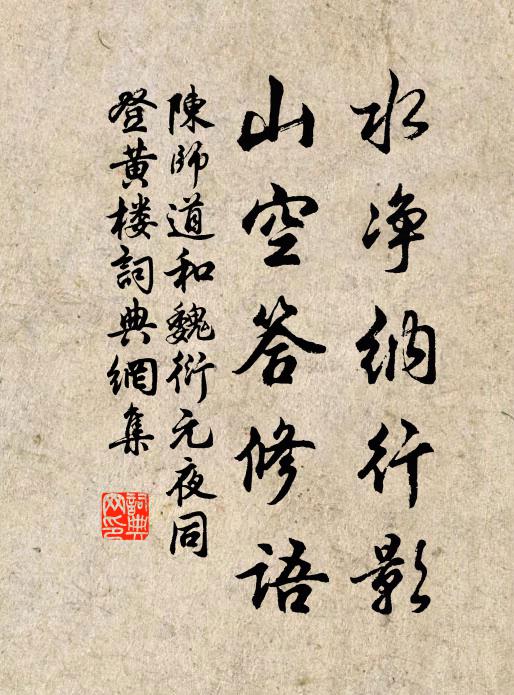 水净纳行影
山空答修语
陳師道和魏衍元夜同
登黄楼詞典網集
詞典网印